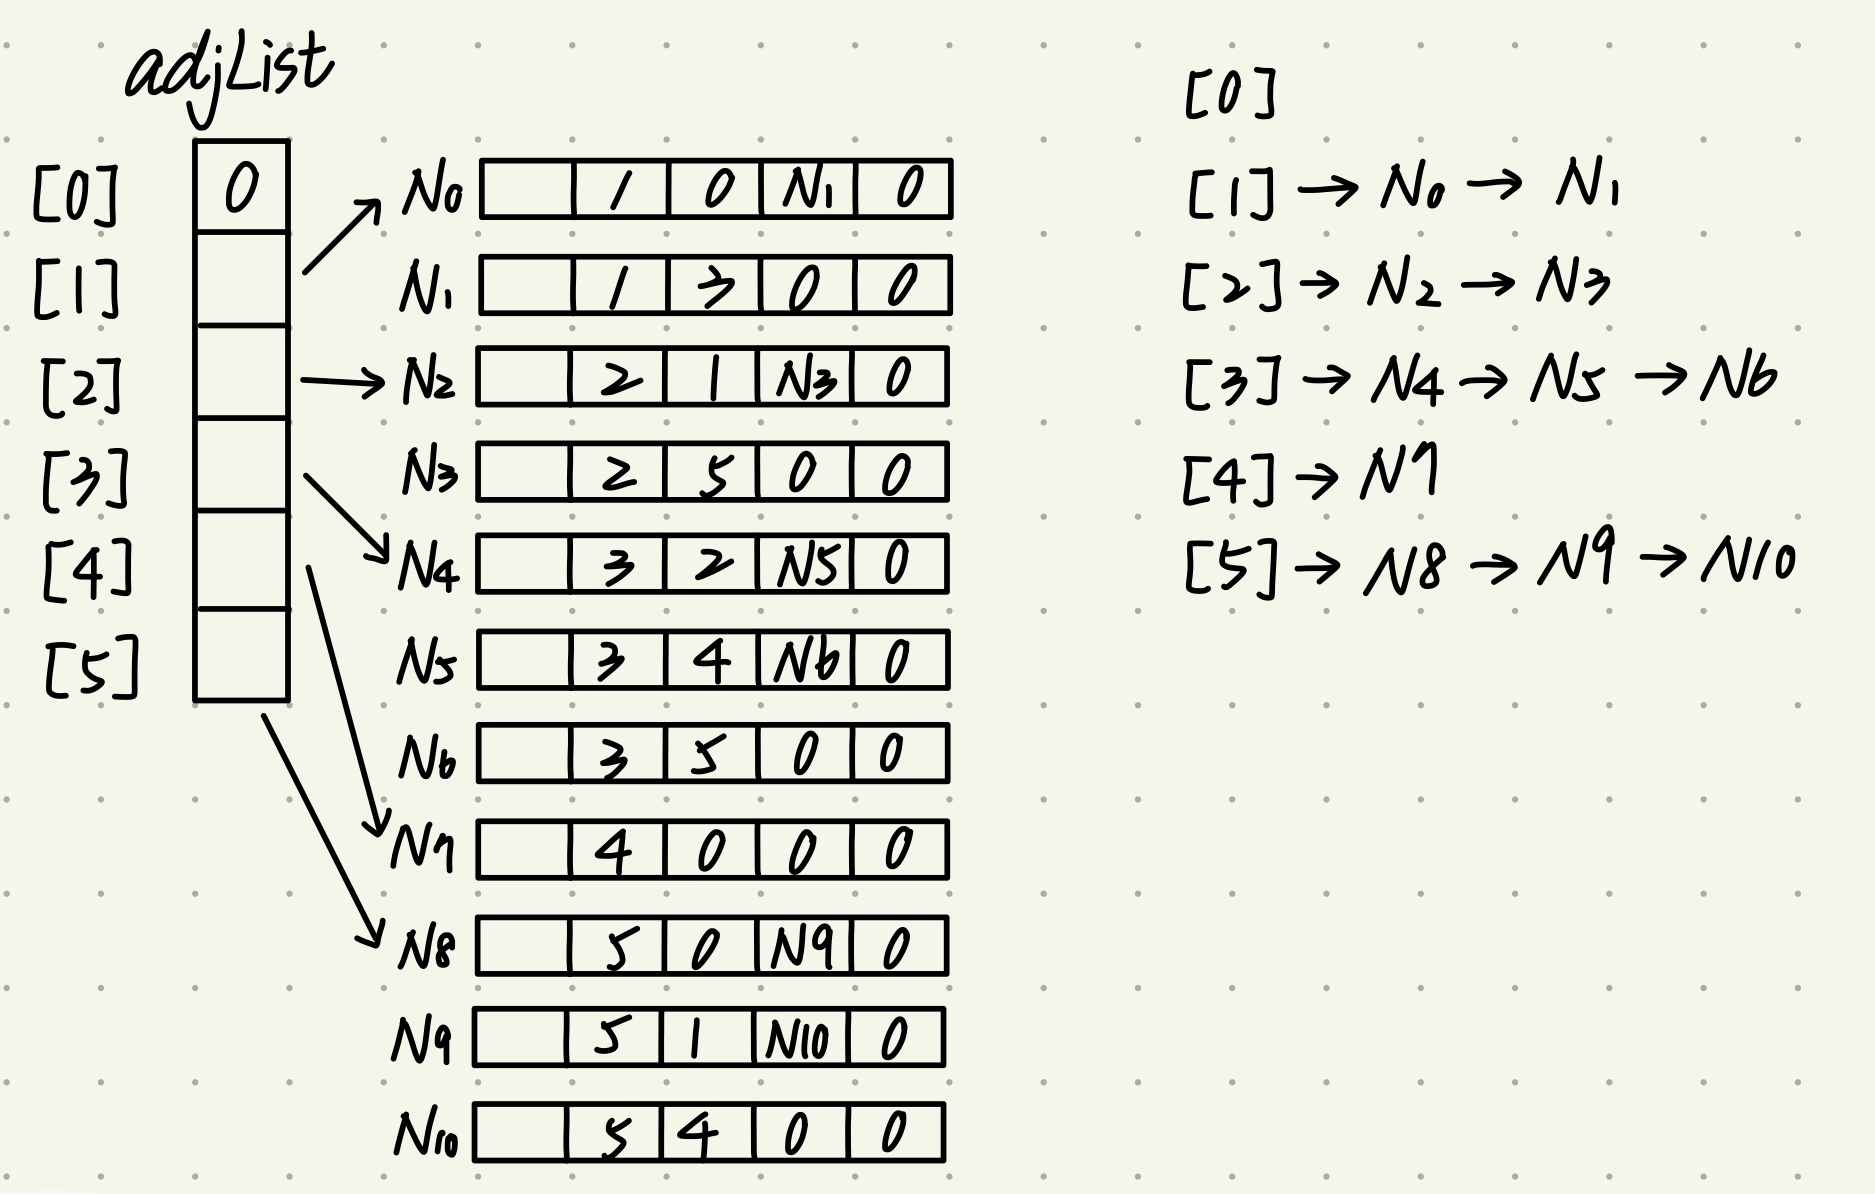 adjList
[0] 0
[1]
[2]
[3]
[4]
[5]
N0 1 0 N1 0
N1 1 3 0 0
N2 2 1 N3 0
N3 2 5 0 0
N4 3 2 N5 0
N5 3 4 N6 0
N6 3 5 0 0
N7 4 0 0 0
N8 5 0 N9 0
N9 5 1 N10 0
N10 5 4 0 0
[0]
[1] → N0 → N1
[2] → N2 → N3
[3] → N4 → N5 → N6
[4] → N7
[5] → N8 → N9 → N10